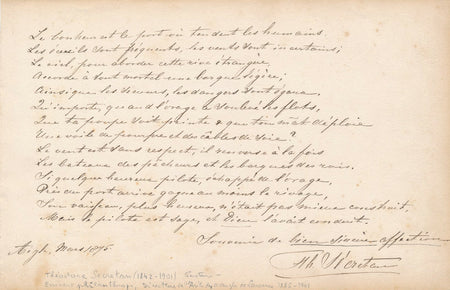 Le bonheur est le port où tendent les humains.
Les écueils sont fréquents, les vents sont incertains;
Le ciel, pour aborder cette rive étrangère,
Accorde à tout mortel une barque légère;
Ainsi que les secours, les dangers sont égaux
Qu'importe, quand l'orage a soulevé les flots,
Que ta poupe soit peinte & que ton mât déploie
Une voile de pourpre et des câbles de soie?
Le vent est sans respect, il renverse à la fois
Les bateaux des pêcheurs et les barques des rois.
Si quelque heureux pilote, échappé de l'orage,
Près du port arrivé gagne au moins le rivage,
Son vaisseau, plus heureux, n'était pas mieux construit.
Mais le pilote est sage, et Dieu l'avait conduit.
Souvenir de bien sincère affection
Aigle, Mars 1875
Th. Secretan
Théodore Secretan (1842-1901)